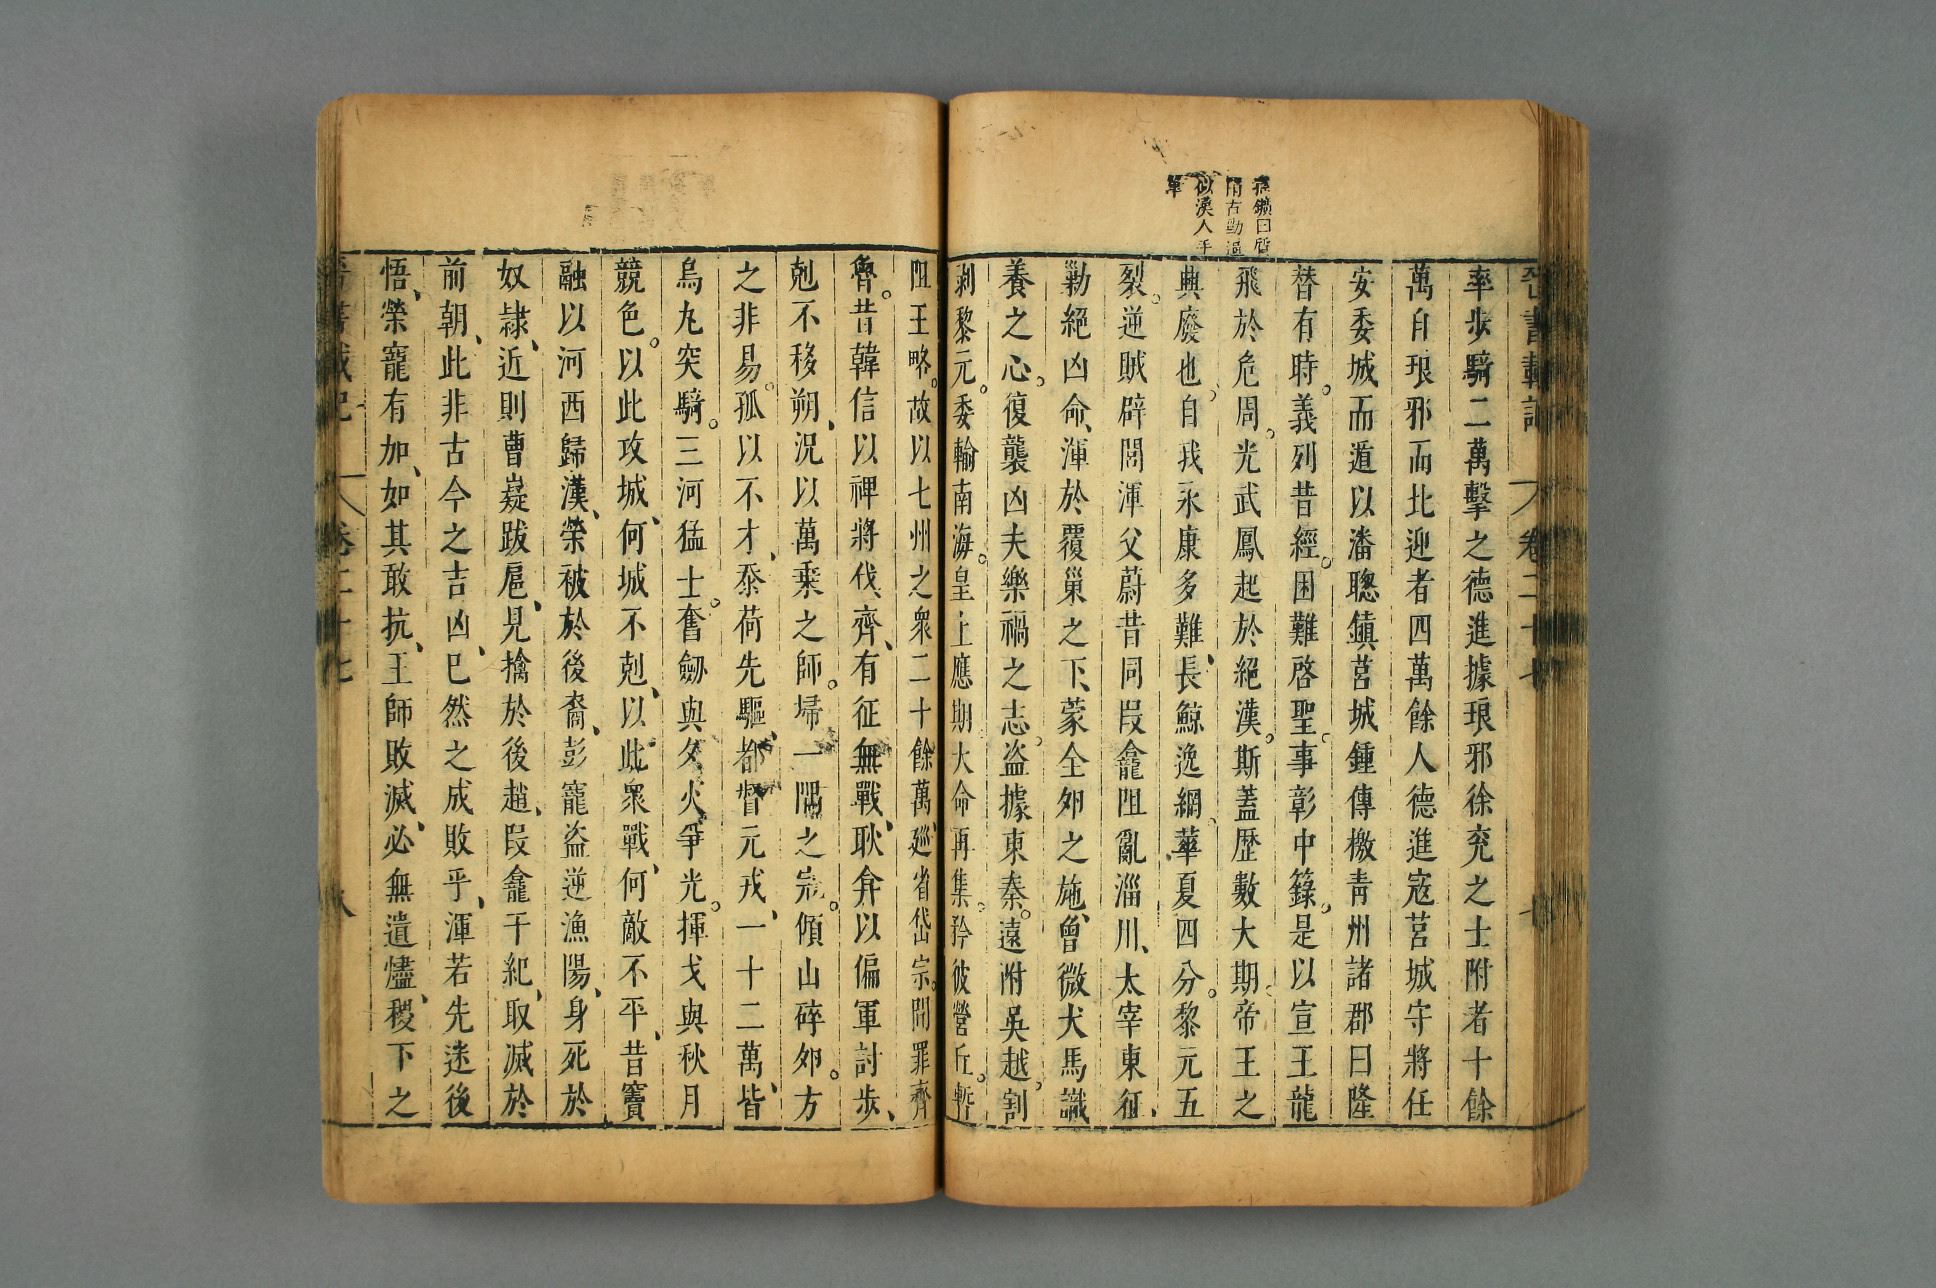 孫鑛曰質
而古勁逼
似漢人手
筆
晉書載記 卷二十七 七
率步騎二萬擊之德進據琅邪徐兗之士附者十餘
萬自琅邪而北迎者四萬餘人德進寇莒城守將任
安委城而遁以潘聰鎮莒城鍾傳檄青州諸郡曰隆
替有時義列昔經困難啓聖事彰中籙是以宣王龍
飛於危周光武鳳起於絕漢斯蓋歷數大期帝王之
興廢也自我永康多難長鯨逸網華夏四分黎元五
裂逆賊辟閭渾父蔚昔同段龕阻亂淄川太宰東征
勦絕凶命渾於覆巢之下蒙全夘之施曾微犬馬識
養之心復襲凶夫樂禍之志盜據東秦遠附吳越割
剥黎元委輸南海皇上應期大命再集矜彼營丘暫
阻王略故以七州之衆二十餘萬巡省岱宗問罪齊
魯昔韓信以裨將伐齊有征無戰耿弇以偏軍討步
剋不移朔況以萬乗之師掃一隅之寇傾山碎夘方
之非易孤以不才忝荷先驅都督元戎一十二萬皆
烏丸突騎三河猛士奮劒與夕火爭光揮戈與秋月
競色以此攻城何城不剋以此衆戰何敵不平昔竇
融以河西歸漢榮被於後裔彭寵盜逆漁陽身死於
奴隷近則曹嶷跋扈見擒於後趙段龕干紀取滅於
前朝此非古今之吉凶巳然之成敗乎渾若先迷後
悟榮寵有加如其敢抗王師敗滅必無遺燼稷下之
晉書載記 卷二十七 八